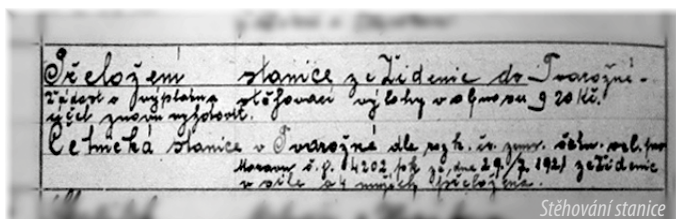 Přeložení stanice ze Židenic do Tvarožné.
Žádost o výplatu stěhovací výlohy v obnosu 920 Kč.
účet znovu vyhotovit.
Četnická stanice v Tvarožné dle rozk. čs. zem. četn. vel. pro
Moravu č.j. 4202 ze dne 29./7. 1921 ze Židenic
v síle 4 mužích přeložena.
Stěhování stanice